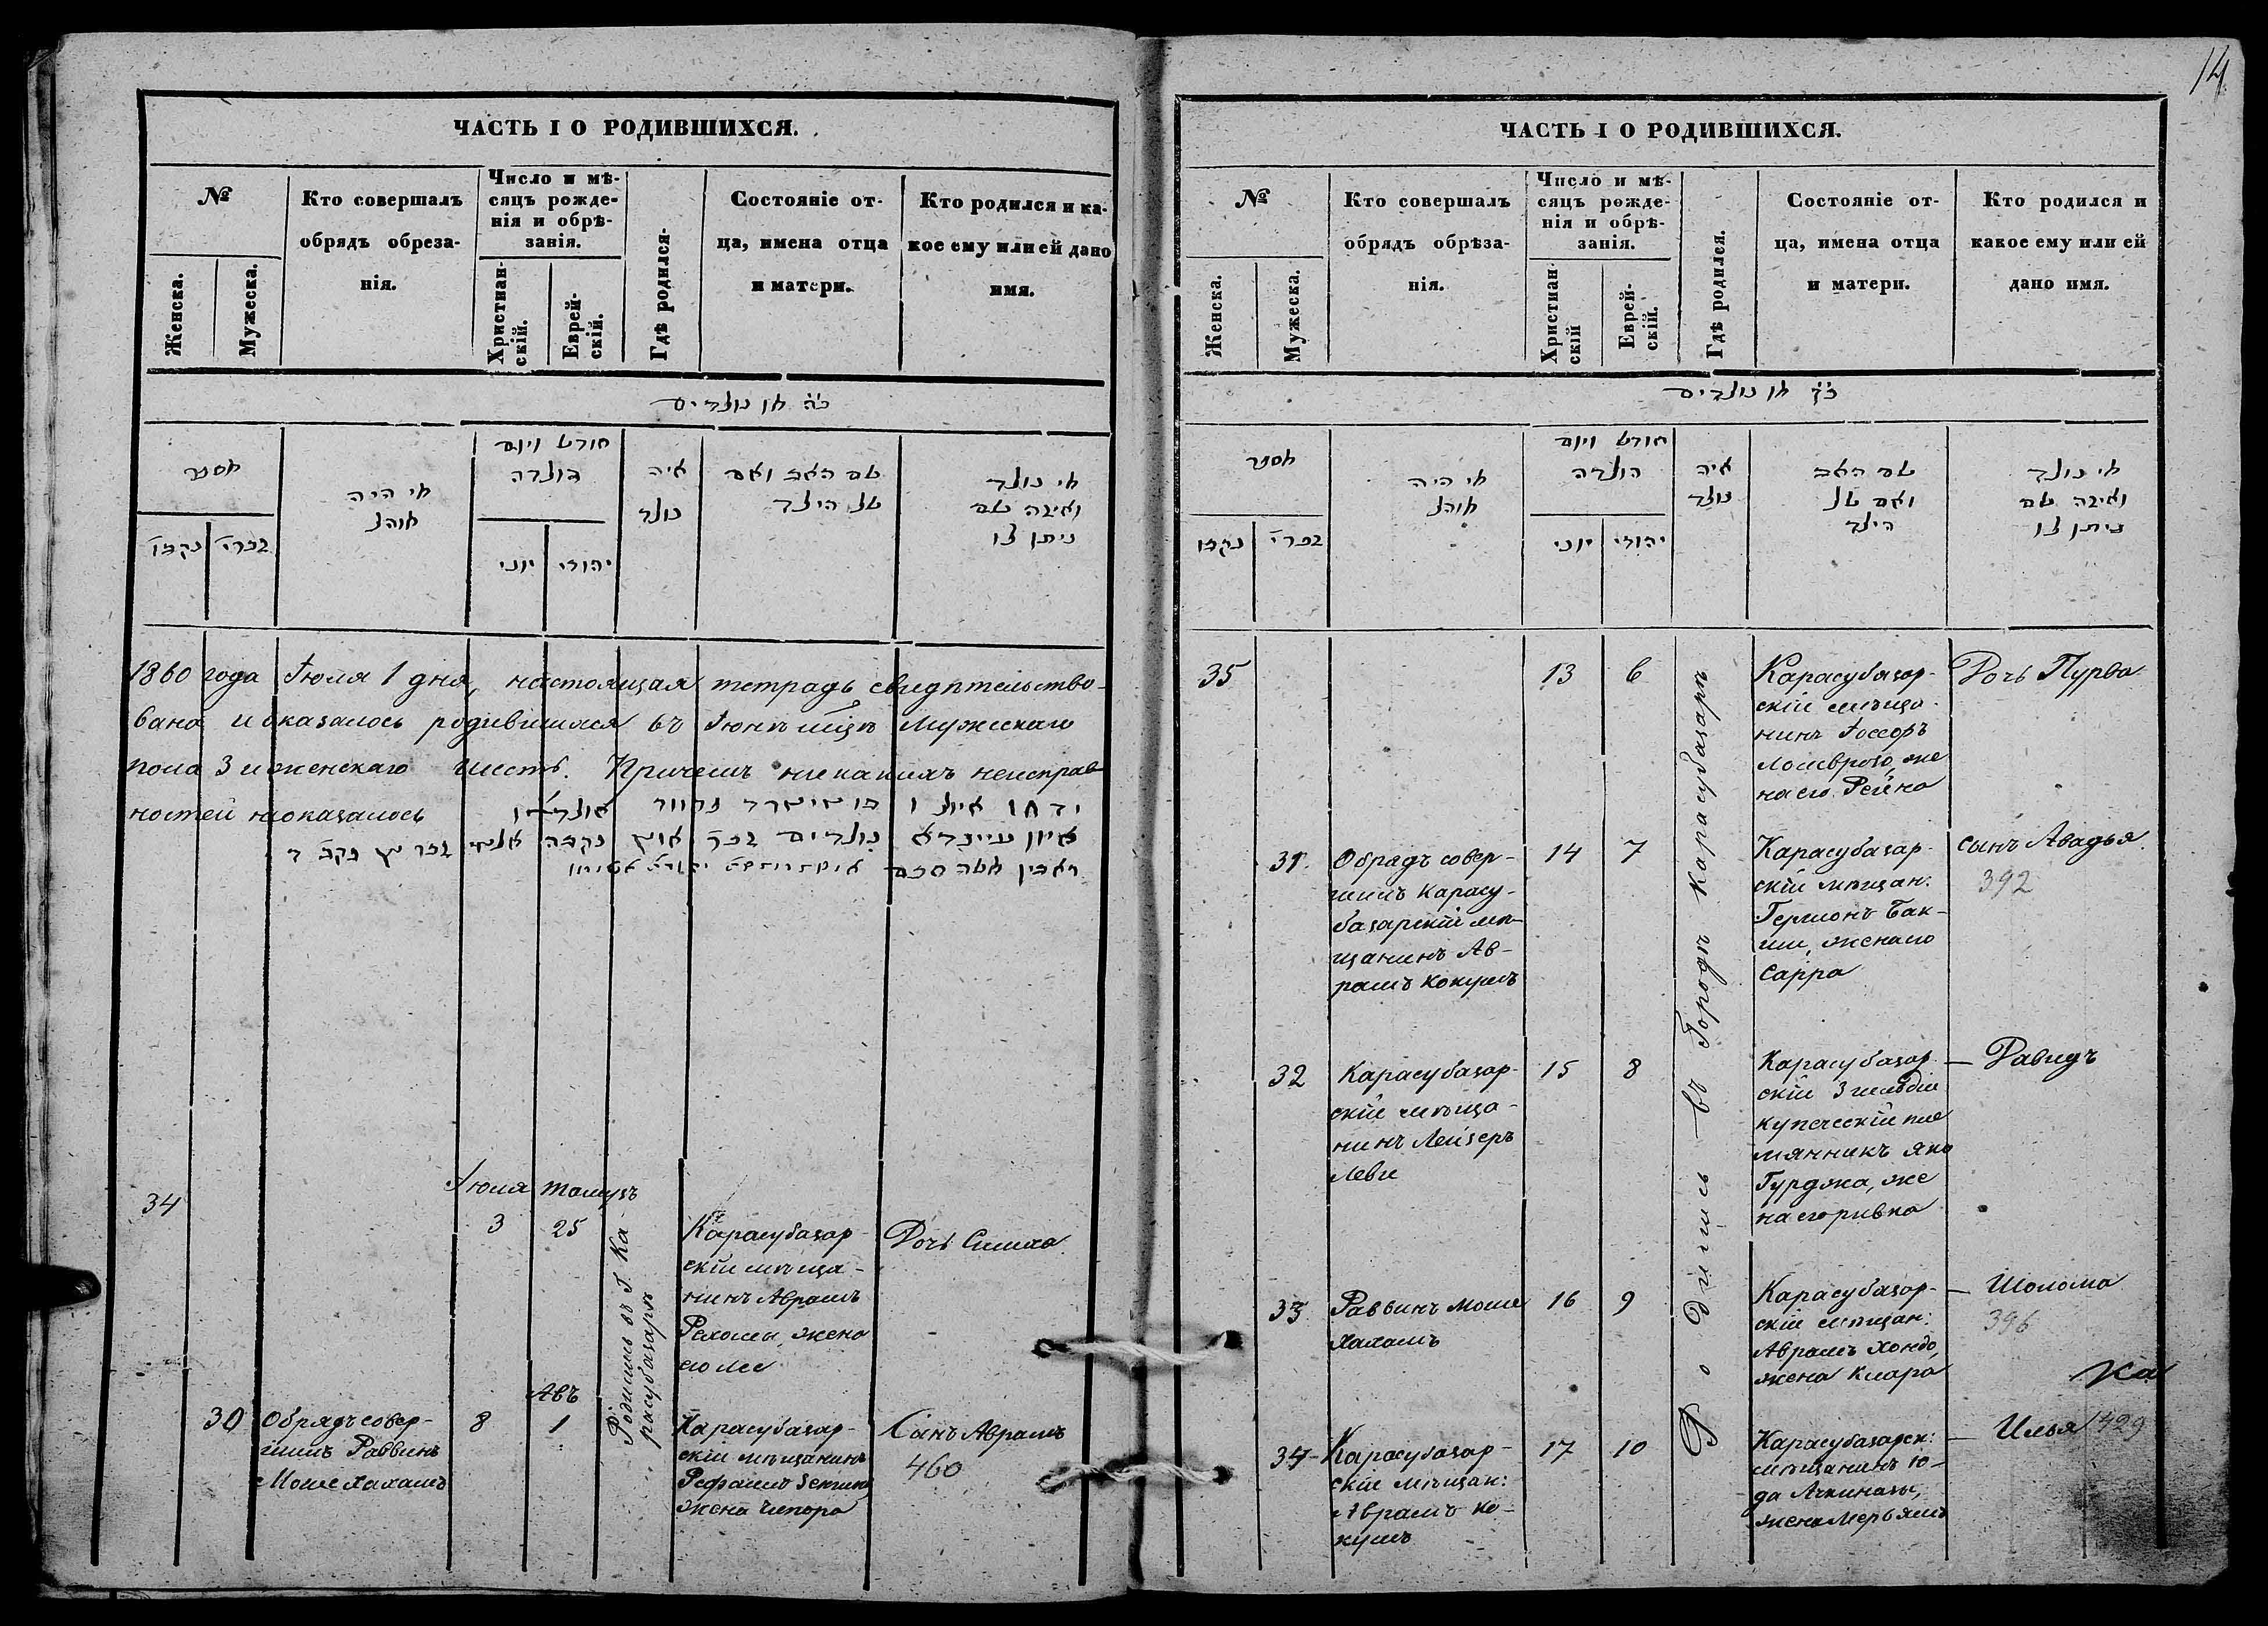 ЧАСТЬ I О РОДИВШИХСЯ.
№
Женска.
Мужеска.
Кто совершалъ
обрядъ обреза-
нія.
Число и мѣ-
сяцъ рожде-
нія и обрѣ-
занія.
Христиан-
скій.
Еврей-
скій.
Гдѣ родился.
Состояніе от-
ца, имена отца
и матери.
Кто родился и ка-
кое ему или ей дано
имя.
מספר
נקבה
זכרי
מי היה
מוהל
חודש ויום
הולדה
יוני
יהודי
איה
נולד
שם האב ואם
של הילד
מי נולד
ואיזה שם
ניתן לו
1860 года Іюля 1 дня, настоящая тетрадь свидѣтельство-
вана и оказалось родившихся въ Іюнѣ мцѣ Мужескаго
пола 3 и женскаго шесть. Причемъ никакихъ неисправ-
ностей неоказалось
34
Іюля
3
25
Родились въ Г. Ка-
расубазарѣ
Карасубазар-
скій мѣща-
нинъ Аврамъ
жена
его Леа
Дочь Симха
30
Обрядъ совер-
шилъ Раввинъ
Моше Хахамъ
8
Авъ
1
Карасубазар-
скій мѣщанинъ
жена Чипора
Сынъ Аврамъ
460
14
ЧАСТЬ I О РОДИВШИХСЯ.
№
Женска.
Мужеска.
Кто совершалъ
обрядъ обрѣза-
нія.
Число и мѣ-
сяцъ рожде-
нія и обрѣ-
занія.
Христиан-
скій
Еврей-
скій.
Гдѣ родился.
Состояніе от-
ца, имена отца
и матери.
Кто родился и
какое ему или ей
дано имя.
מספר
נקבה
זכרי
מי היה
מוהל
חודש ויום
הולדה
יוני
יהודי
איה
נולד
שם האב
ואם של
הילד
מי נולד
ואיזה שם
ניתן לו
Родились въ Городѣ Карасубазарѣ
35
13
6
Карасубазар-
скій мѣща-
нинъ
же-
на его Рейна
Дочь Пурва
31
Обрядъ совер-
шилъ Карасу-
базарскій мѣ-
щанинъ Ав-
рамъ Кокушъ
14
7
Карасубазар-
скій мѣщан:
Гершонъ Бак-
ши, жена его
Сарра
Сынъ Авадья
392
32
Карасубазар-
скій мѣща-
нинъ Лейзеръ
Леви
15
8
Карасубазар-
скій 3 гильдіи
купеческій пле-
мянникъ Яко
Гурджа, же-
на его Ривка
— Давидъ
33
Раввинъ Моше
Хахамъ
16
9
Карасубазар-
скій мѣщан:
Аврамъ Хондо,
жена Клара
— Шолома
396
34
Карасубазар-
скій мѣщан:
Аврамъ Ко-
кушъ
17
10
Карасубазарск:
мѣщанинъ Ю-
да Ачкинази,
жена Мерьямъ
— Илья 429
Ка